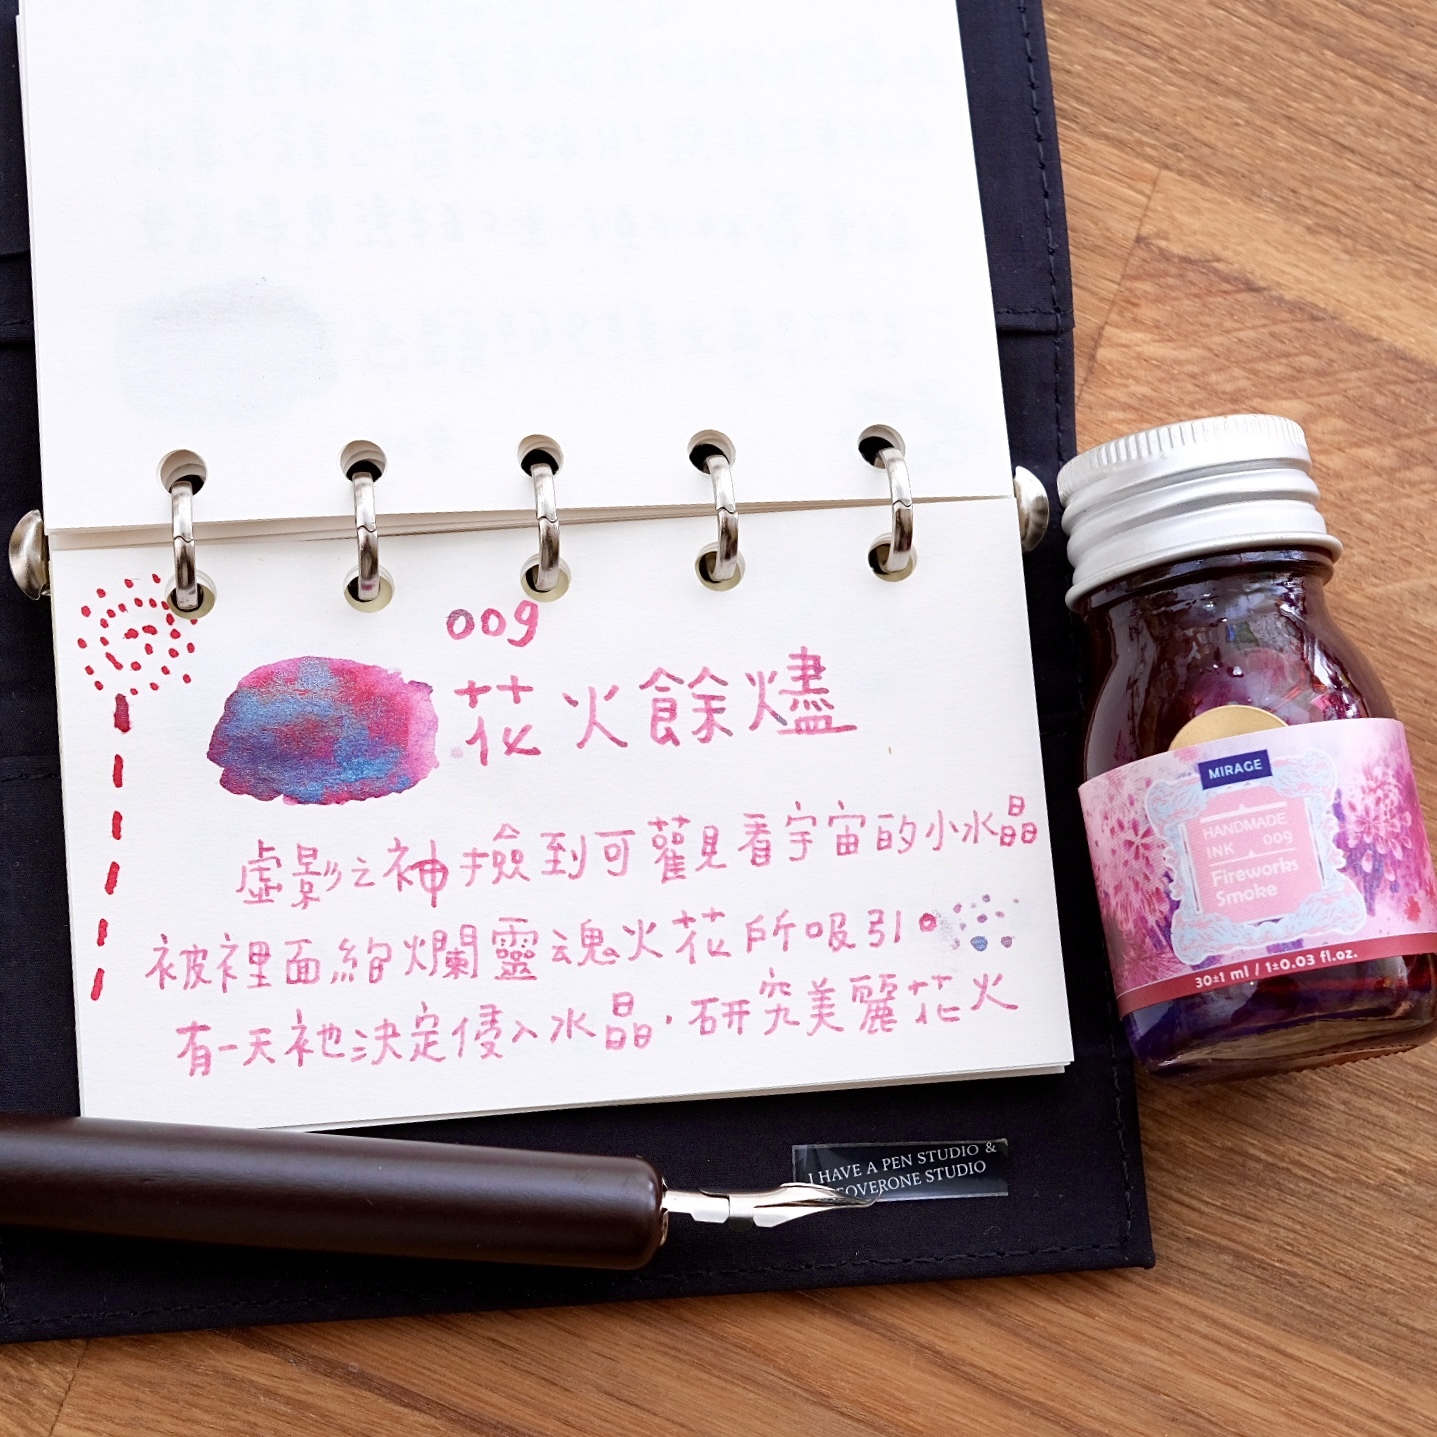 009
花火餘燼
虛影之神撿到可觀見看宇宙的小水晶
被裡面絢爛靈魂火花所吸引
有一天祂決定侵入水晶,研究美麗花火
MIRAGE
HANDMADE
INK 009
Fireworks
Smoke
30±1 ml / 1±0.03 fl.oz.
I HAVE A PEN STUDIO &
STUDIO